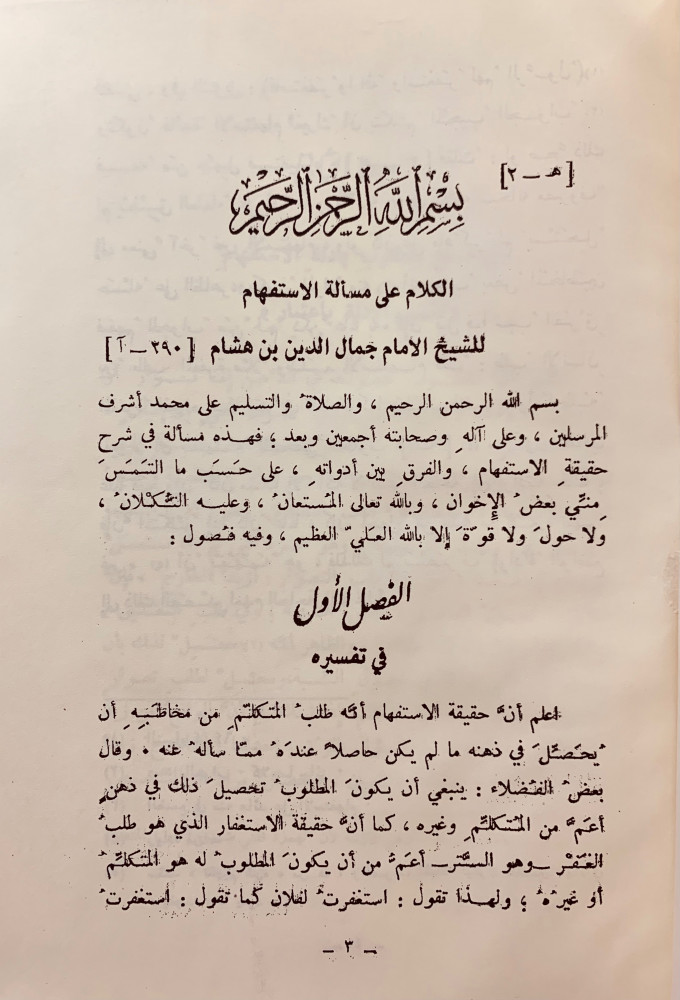 [ هـ ــ ٢ ]
بِسْمِ اللَّهِ الرَّحْمَنِ الرَّحِيمِ
الكلام على مسألة الاستفهام
للشيخ الامام جمال الدين بن هشام [ ٢٩٠ ــ آ ]
بسم الله الرحمن الرحيم ، والصلاةُ والتسليم على محمد أشرف
المرسلين ، وعلى آلهِ وصحابته أجمعين وبعد ؛ فهذه مسألة في شرح
حقيقةِ الاستفهام ، والفرقِ بين أدواتهِ ، على حَسَب ما التَمَسَ
مِنّي بعضُ الإِخوان ، وبالله تعالى المُستعانُ ، وعليه التُّكْلانُ ،
ولا حولَ ولا قوّةَ إلا بالله العَليّ العظيم ، وفيه فُصول :
الفصل الأول
في تفسيره
اعلم أنَّ حقيقة الاستفهام أنّه طلبُ المتكلِّمِ من مخاطَبِهِ أن
يُحَصِّلَ في ذهنه ما لم يكن حاصلاً عندَه ممّا سألهُ عنه . وقال
بعضُ الفُضلاء : ينبغي أن يكونَ المطلوبُ تحصيلَ ذلك في ذهنٍ
أعمَّ من المُتكلّمِ وغيره ، كما أنَّ حقيقة الاستغفار الذي هو طلبُ
الغَفْر ــ وهو السَّتر ــ أعمُّ من أن يكونَ المطلوبُ له هو المتكلِّمُ
أو غيرُهُ ؛ ولهذا تقول : استغفرتُ لفلان كما تقول : استغفرتُ
ــ ٣ ــ